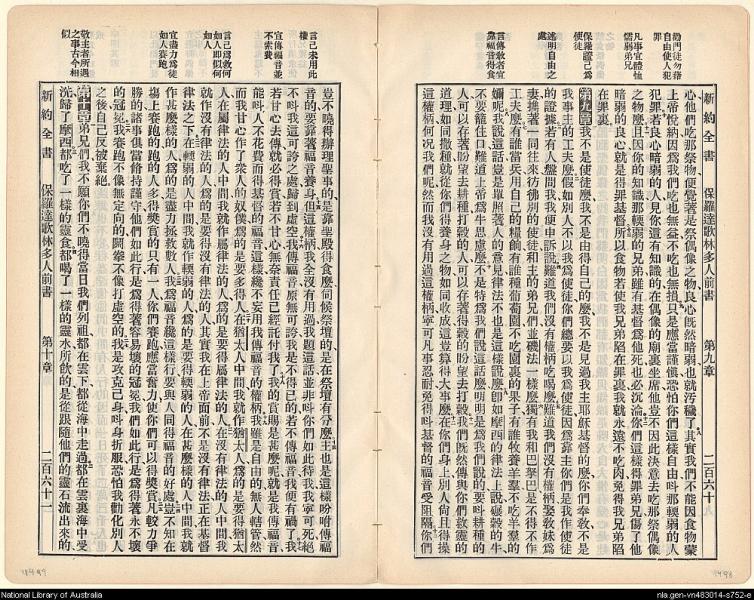 論門徒勿藉
自由使人犯
罪
凡事宜體恤
懦弱弟兄
保羅證己爲
使徒
述明自由之
處
言傳敎者宜
靠福音得食
新約全書 保羅達歌林多人前書 第九章 二百六十
心他們吃那祭物便覺著是祭偶像之物良心旣然暗弱也就污穢了其實我們不能因食物蒙
上帝悅納因爲我們吃也無益不吃也無損只是應當謹愼恐怕你們這樣自由呌那輭弱的人
犯罪若良心暗弱的人見你這有知識的在偶像的廟裏坐席他豈不因此決意去吃那祭偶像
之物麼且因你的知識那輭弱的兄弟雖有基督爲他死也必沉淪你們這樣得罪弟兄傷了他
暗弱的良心就是得罪基督所以食物若使我兄弟陷在罪裏我就永遠不吃肉免得我兄弟陷
在罪裏
第九章我不是使徒麼我不是由得自己的麼我不是見過我主耶穌基督的麼你們奉敎不是
我事主的工夫麼假如別人不以我爲使徒你們總要以我爲使徒因爲靠主你們是我作使徒
的證據若有人盤問我我便申訴說難道我們沒有權柄吃喝麼難道我們沒有權柄娶敎妹爲
妻攜著一同往來彷彿別的使徒和主的弟兄們並磯法一樣麼獨有我和巴拏巴是不得不作
工夫麼有誰當兵用自己的糧餉有誰種葡萄園不吃園裏的果子有誰牧養羊羣不吃羊羣的
嬭呢我說這話豈是單照著人的意見律法不也是這樣說麼卽如摩西的律法上說碾穀的牛
不要籠住口難道上帝爲牛思慮麼不是特爲我們說這話麼明明是爲我們說的要呌耕種的
人可以存著盼望去耕種打穀的人可以存著得穀的盼望去打穀我們旣然傳與你們敎靈的
道理如同撒種就從你們得養身之物如同收成這豈算得大事麼在你們身上別人尙且得操
這權柄何况我們呢然而我沒有用過這權柄寧可凡事忍耐免得呌基督的福音受阻隔你們
言己未用此
權
宣傳福音並
不索費
言己爲敎何
如人卽似何
如人
宜盡力爲徒
如人賽跑
敬主者所遇
之事古今相
似
豈不曉得辦理聖事的是靠聖殿得食麼伺候祭壇的是在祭壇有分麼主也是這樣吩咐傳福
音的要靠著福音養身但這權柄我全沒有用過我題這話並非呌你們如此待我我寧可死絕
不呌我這可誇之處歸到虛空我傳福音原無可誇我是不得已的若不傳福音我便有禍了我
若甘心去傳就必得賞若不甘心無奈責任已經託付我了我的賞賜是甚麼呢就是我傳福音
能呌人不花費而得基督的福音這樣纔不妄用我傳福音的權柄我雖是自由的無人轄管然
而我甘心作了衆人的奴僕爲的是要多得人在猶太人中間我就作猶太人爲的是要得猶太
人在屬律法的人中間我就作屬律法的人爲的是要得屬律法的人在沒有律法的人中間我
就作沒有律法的人爲的是要得沒有律法的人其實我在上帝面前不是沒有律法正在基督
律法之下在輭弱的人中間我就作輭弱的人爲的是要得輭弱的人在甚麼樣的人中間我就
作甚麼樣的人爲的是盡力拯救數人我爲福音纔這樣行要與人同得福音的好處豈不知在
場上賽跑的跑的人多得獎賞的只有一人你們賽跑應當奮力使你們可以得獎賞凡較力爭
勝的諸事俱當脩持謹守他們如此行是爲得著容易壞的冠冕我們如此行是爲得著永不壞
的冠冕我賽跑不像無定向的鬭拳不像打虛空的我是攻克己身呌身折服恐怕我勸化別人
之後自己反被棄絕
第十章弟兄們我不願你們不曉得當日我們列祖都在雲下都從海中走過都在雲裏海中受
洗歸了摩西都吃了一樣的靈食都喝了一樣的靈水所飮的是從跟隨他們的靈石流出來的
新約全書 保羅達歌林多人前書 第十章 二百六十一
National Library of Australia
nla.gen-vn483014-s752-e